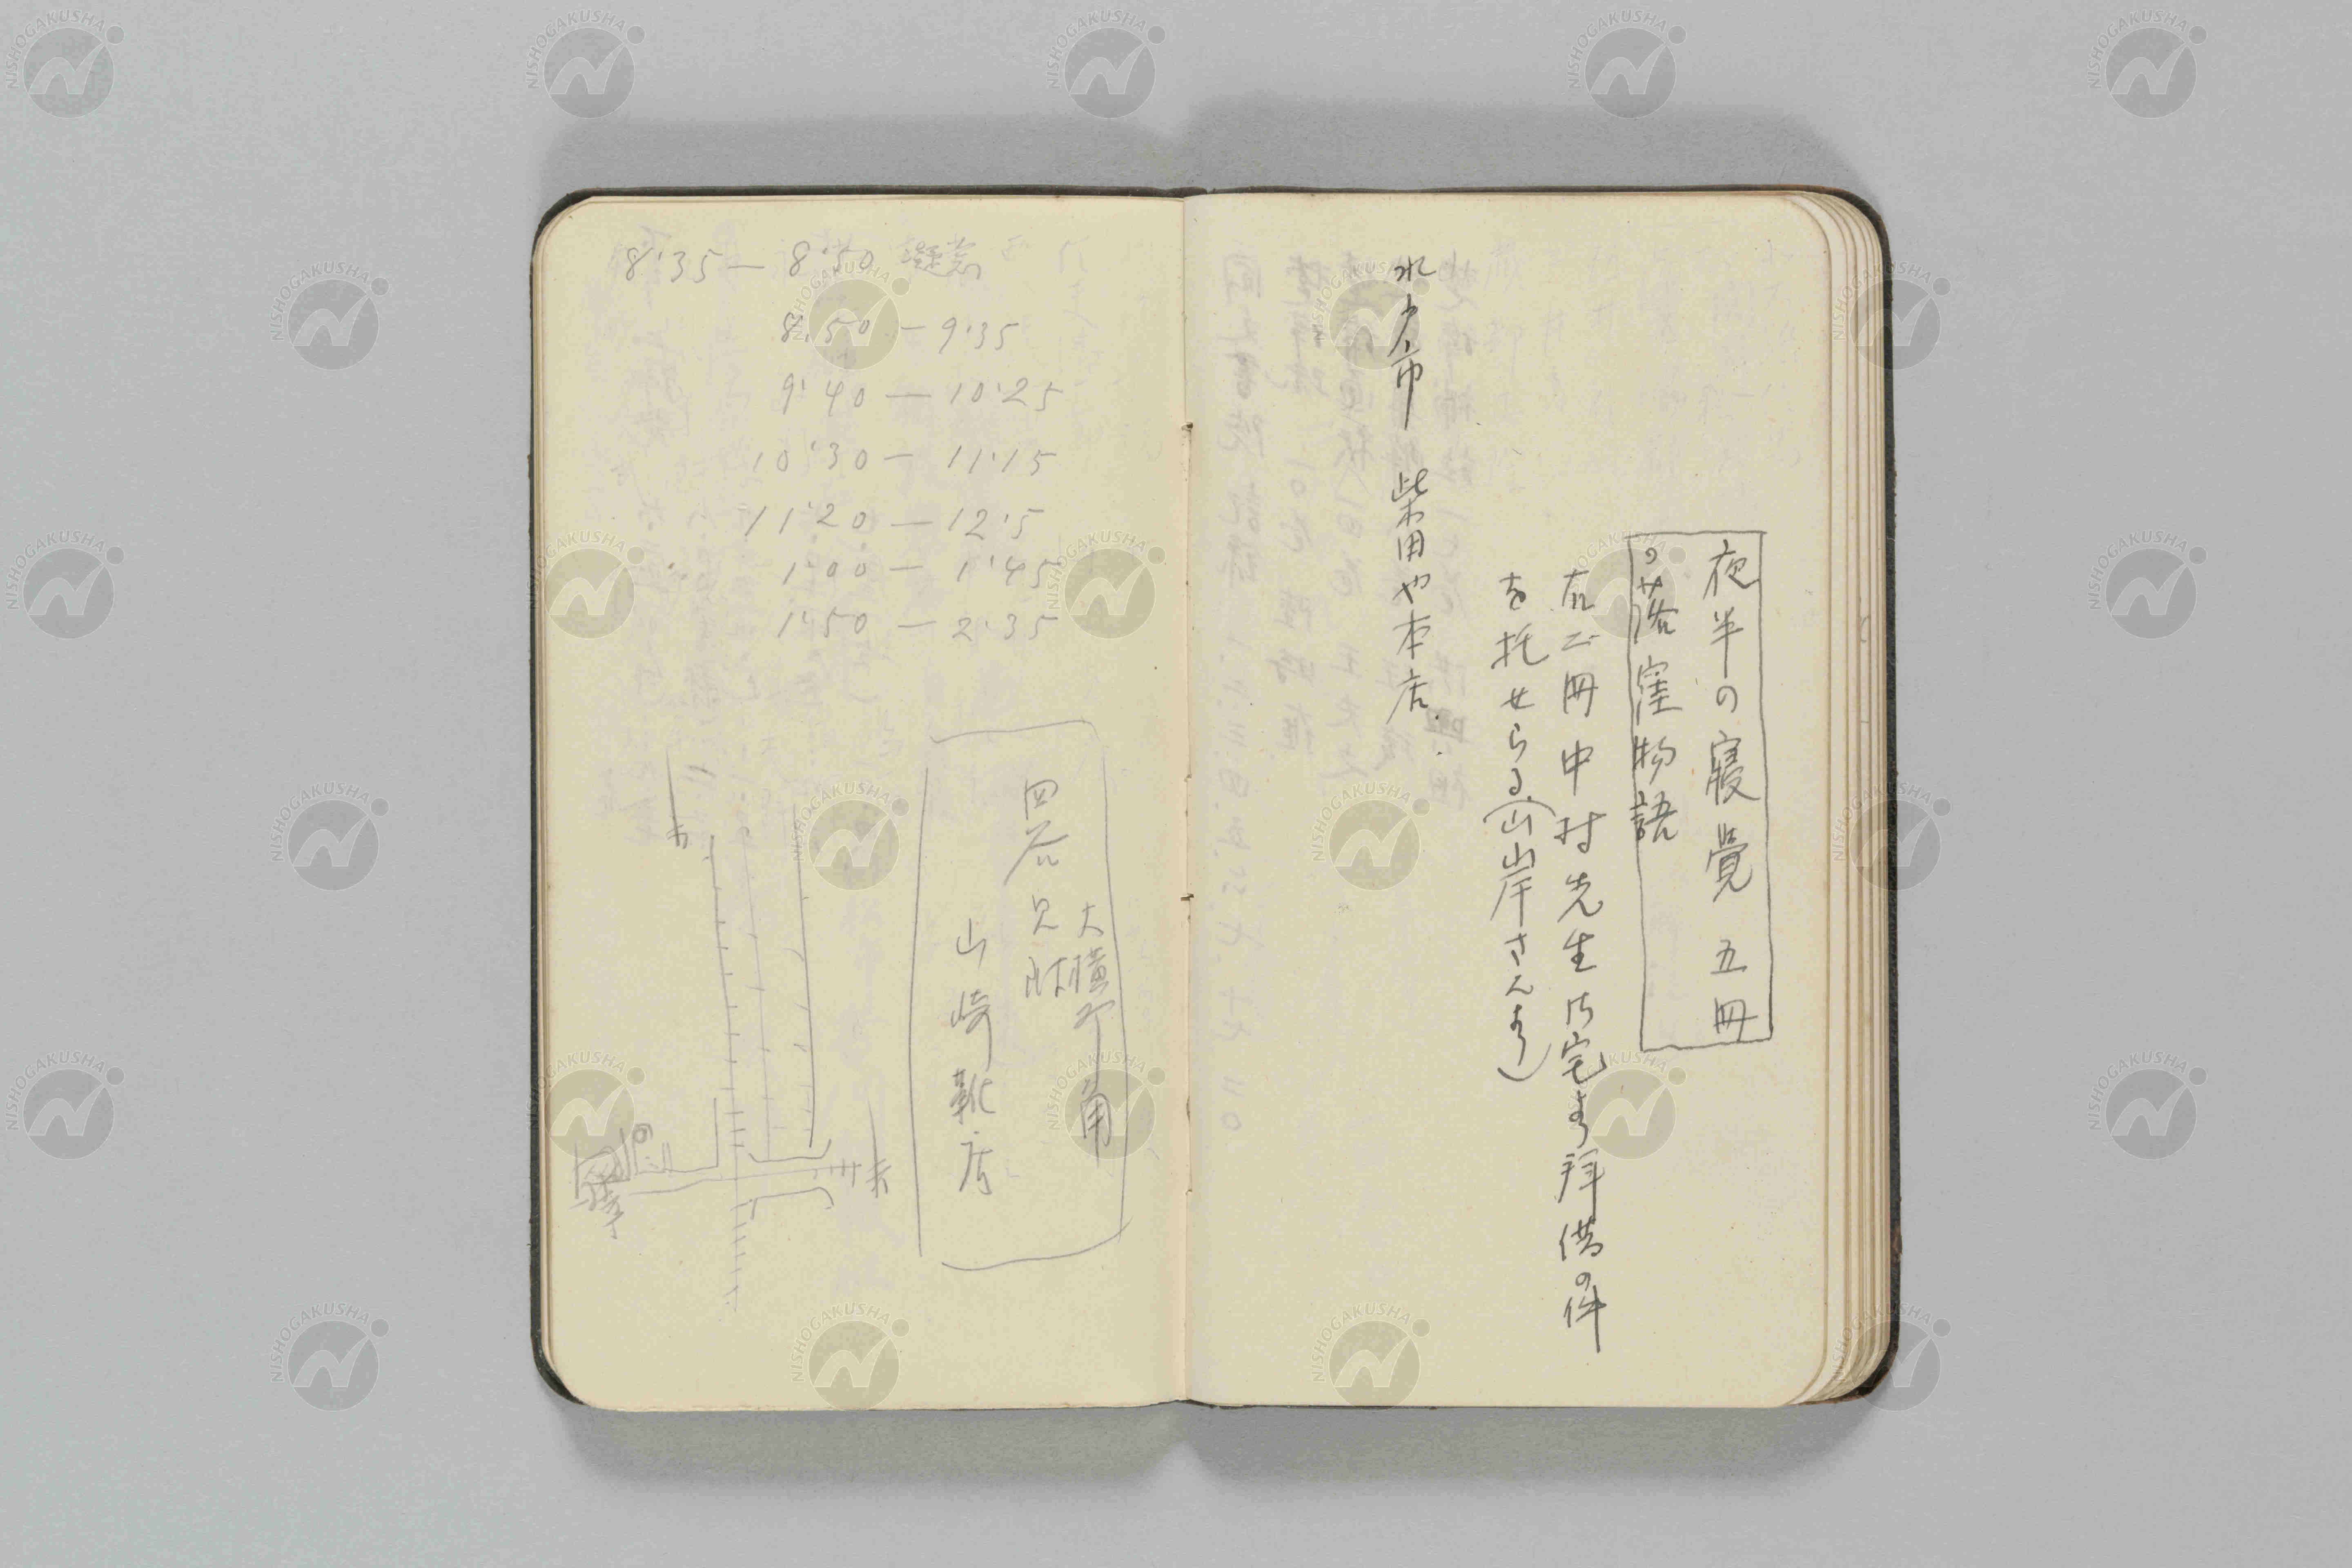 夜半の寝覺 五冊
の落窪物語
右二冊中村先生御宅より拝借の件
を托せらる(山岸さんより)
水戸市 柴田や本店.
8:35 — 8:50 凝念
8:50 — 9:35
9:40 — 10:25
10:30 — 11:15
11:20 — 12:5
1:00 — 1:45
1:50 — 2:35
大横町角
四谷見附
山崎靴店